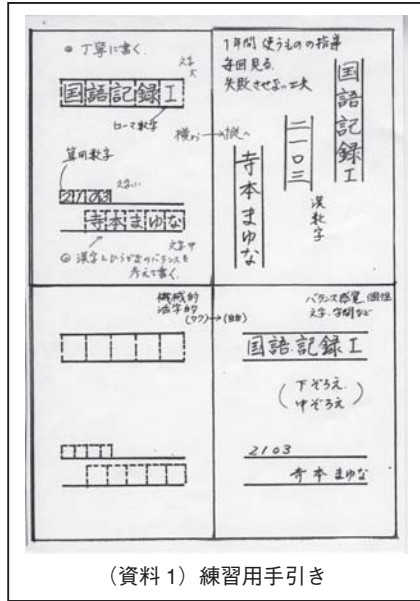 ◎ 丁寧に書く.
文字
大
国語記録I
ローマ数字
算用数字
文字小
2103
寺本まゆな
文字中
◎ 漢字とひらがなのバランスを
考えて書く.
1年間使うものの指導
毎回見る.
失敗させない工夫
横から→縦へ
国語記録I
二一〇三
漢数字
寺本まゆな
機械的
活字的
(ワク)→(自由)
バランス感覚.個性
文字.字間など
国語.記録I
(下ぞろえ.
中ぞろえ)
2103
寺本まゆな
(資料1) 練習用手引き